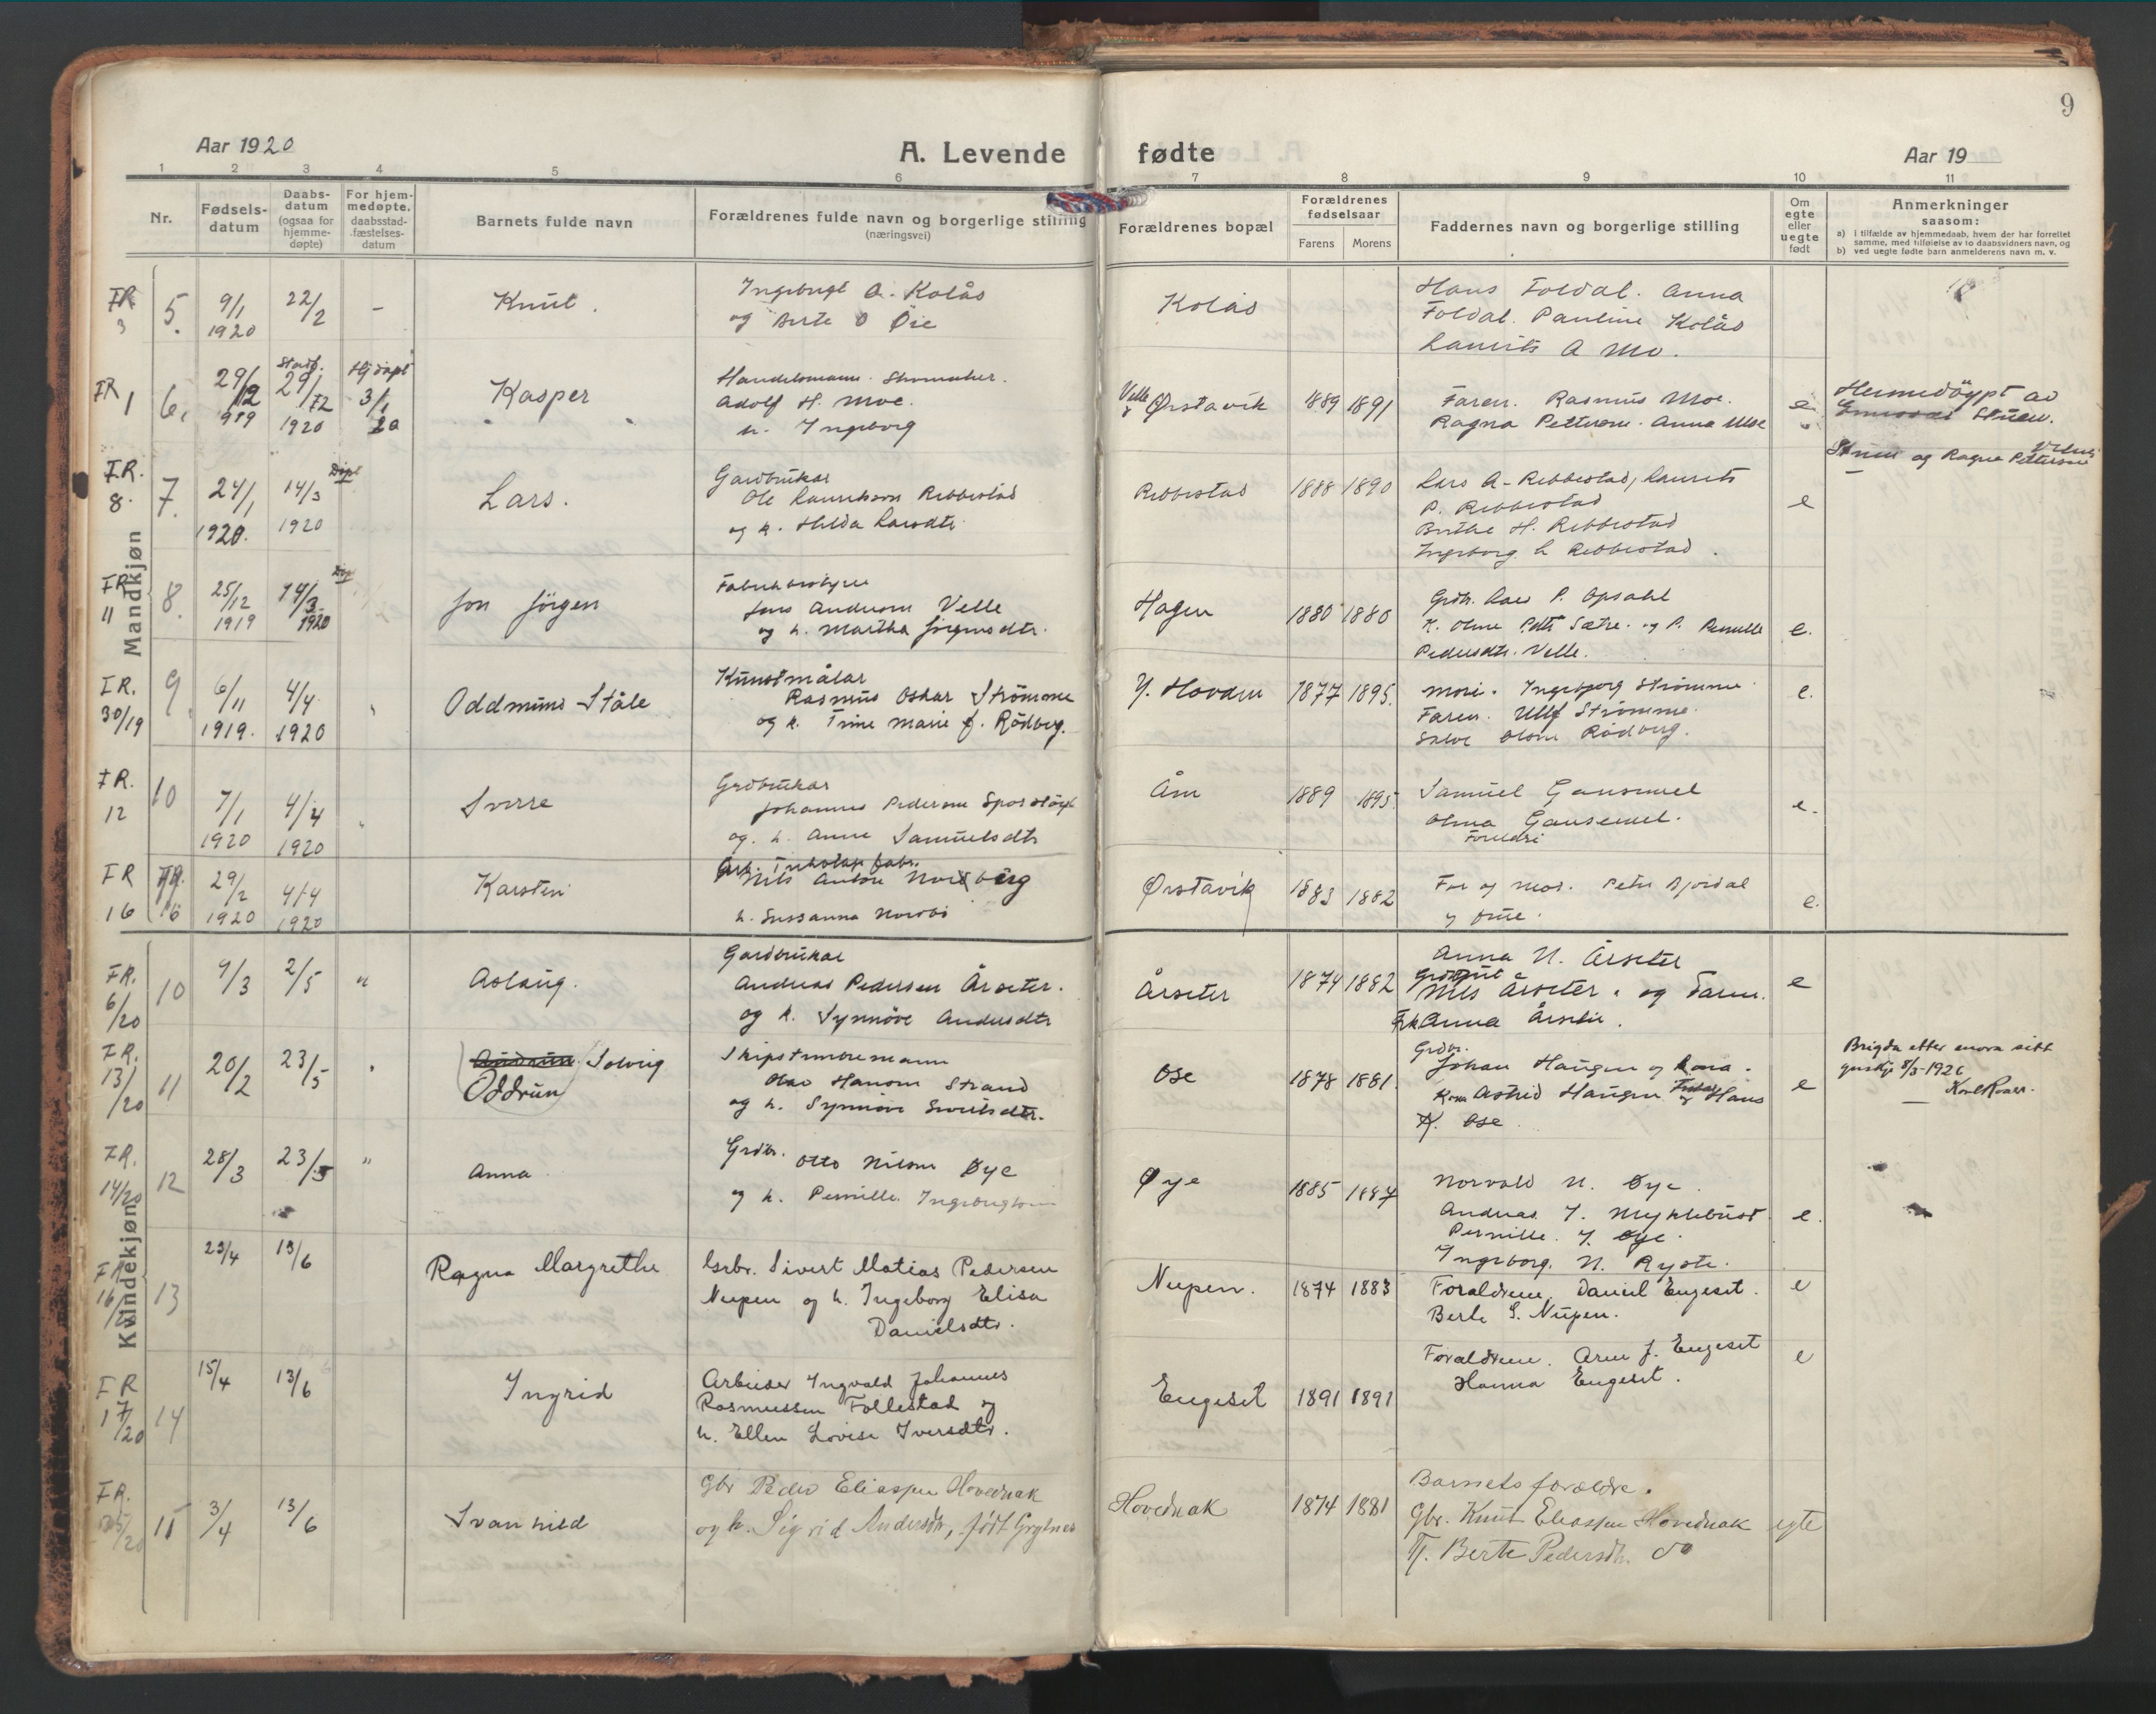 9
Aar 1920
A. Levende fødte
Aar 19
1 2 3 4 5 6 7 8 9 10 11
Nr.
Fødsels-
datum
Daabs-
datum
(ogsaa for
hjemme-
døpte)
For hjem-
medøpte,
daabsstad-
fæstelses-
datum
Barnets fulde navn
Forældrenes fulde navn og borgerlige stilling
(næringsvei)
Forældrenes bopæl
Forældrenes
fødselsaar
Farens Morens
Faddernes navn og borgerlige stilling
Om
egte
eller
uegte
født
Anmerkninger
saasom:
a) i tilfælde av hjemmedaab, hvem der har forrettet
samme, med tilføielse av to daabsvidners navn, og
b) ved uegte fødte barn anmelderens navn m. v.
Mandkjøn
FR 3 5. 9/1 1920 22/2 - Knut.
A. Kolås
og Berte O Øie
Kolås
Hans Foldal. Anna
Foldal. Pauline Kolås
Laurits A Mo.
FR 1 6. 29/12 919 29/2 1920 3/1 20 Kasper
Handelsmann. Skomaker.
Adolf H. Moe.
h. Ingeborg
Velle Ørstavik 1889 1891
Faren. Rasmus Moe.
Ragna Petterson. Anna Moe
e
Heimedöypt av
Struen og Ragna Petterson
F.R. 8. 7. 24/1 1920. 14/3 1920 Lars.
Gardbrukar
Ole Rebbestad
og k. Hilda Larsdtr.
Rebbestad 1888 1890
Lars A. Rebbestad, Laurits
P. Rebbestad
Birthe H. Rebbestad
Ingeborg L Rebbestad.
e
FR 11 8. 25/12 1919 14/3 1920 Jon Jörgen
Jens Anderson Velle
og h. Martha Jörgensdtr.
Hagen 1880 1880
Grdbr. Lars P. Opsahl
Pedersdtr. Velle.
e.
F.R. 30/19 9. 6/11 1919. 4/4 1920 Oddmund Ståle
Kunstmålar
Rasmus Oskar Strömme
og k. Trine Marie f. Rödberg.
Y. Hovden 1877 1895.
Mori. Ingebjorg Strömme
Faren. Ulf Strömme.
Olson Rödberg.
e.
F.R. 12 10 7/1 1920 4/4 1920 Sverre
Grdbrukar
Johannes Pederson
og. h. Anne Samuelsdtr
Åm 1889 1895.
Samuel Gausemel
Olma Gausemel.
Foreldri
e.
FR 16 29/2 1920 4/4 1920 Karsten
Arb. Trikotage fabr.
Nils Anton Nordberg
h. Sussanna
Ørstavik 1883 1882
Far og Mor. Peter Bjordal
e.
Kvindekjøn
FR. 6/20 10 9/3 2/5 " Aslaug.
Gardbrukar
Andreas Pedersen Årseter.
og k. Synnöve Andersdtr
Årseter 1874 1882
Anna N. Årseter
Nils Årseter. og Faren.
Anna Årseter.
e
FR. 13/20 11 20/2 23/5 Solvig
Oddrun
Skipstimmermann
Olav Hanson Strand
og h. Synnöve Sivertsdtr.
Ose 1878 1881.
Grdbr.
Johan Haugen og Kona.
Astrid Haugen og Hans
K. Ose
e
Brigda etter enora sitt
8/3-1926
FR. 14/20 12 28/3 23/5 " Anna
Grdbr. Otto Nilson Øye
og k. Pernille
Øye 1885 1887
Norvald N. Øye.
Andreas J. Myklebust.
Pernille. J. Øye.
Ingeborg. N. Ryste.
e.
FR 16/20 13 23/4 13/6 Ragna Margrethe
Grbr. Sivert Matias Pedersen
Nupen og h. Ingeborg Elisa
Danielsdtr.
Nupen. 1874 1883
Foraldrene, Daniel Engeset.
Berte S. Nupen.
e
FR 17/20 14 15/4 13/6 Ingrid
Arbeider Ingvald Johannes
Rasmussen Follestad og
h. Ellen Lovise Iversdtr.
Engeset 1891 1891
Foraldrene. Arne J. Engeset
Hanna Engeset.
e
FR. 15 3/4 13/6 Svanhild
Gbr Peder Eliassen Hovednak
og h. Sigrid Andersdtr, født Grytnes
Hovednak 1874 1881
Barnets forældre.
Gbr. Knut Eliassen Hovednak
Tj. Berte Pedersdtr. do
egte